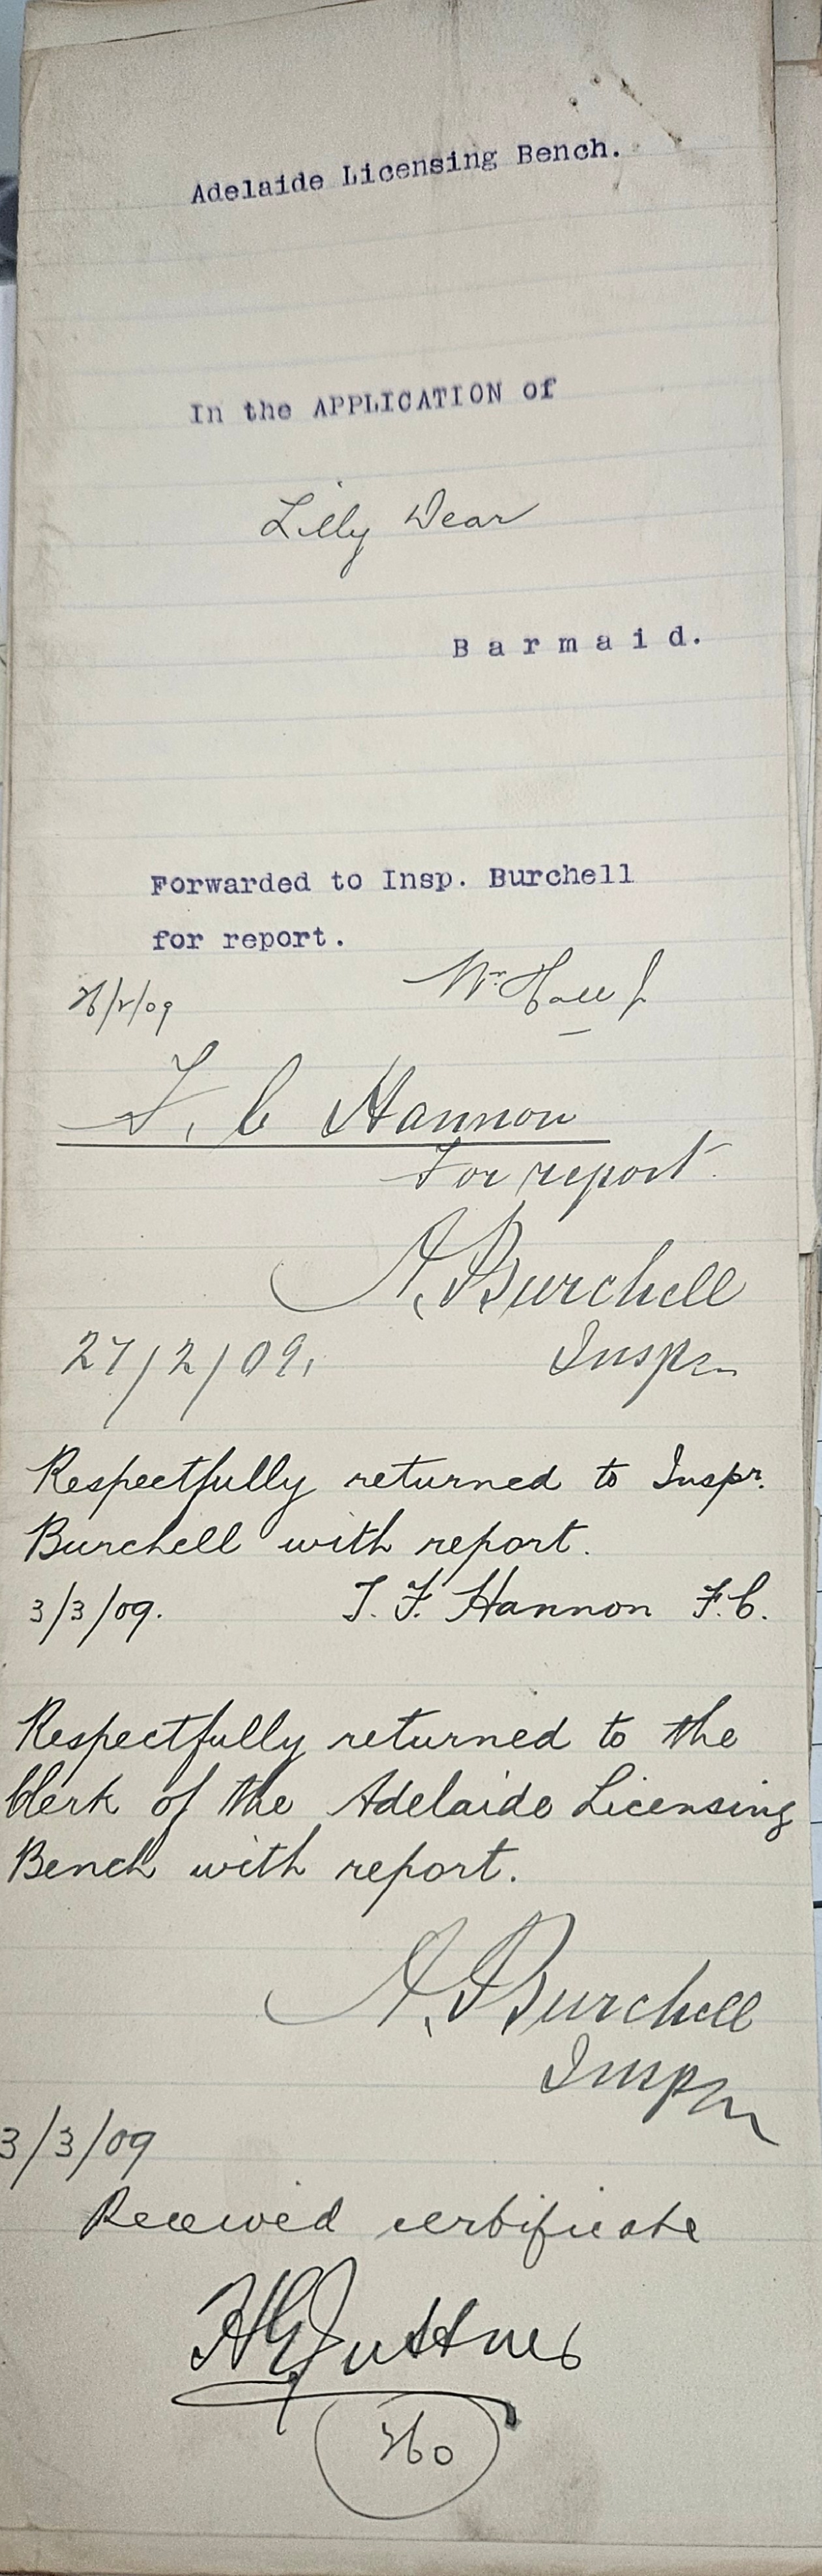 Adelaide Licensing Bench.
In the APPLICATION of
Lilly Dear
Barmaid.
Forwarded to Insp. Burchell
for report.
26/2/09
Wm Hall
F. C Hannon
For report.
A. Burchell
27/2/09. Inspr
Respectfully returned to Inspr.
Burchell with report.
3/3/09. T. F. Hannon F.C.
Respectfully returned to the
Clerk of the Adelaide Licensing
Bench with report.
A. Burchell
Inspr
3/3/09
Received certificate
260